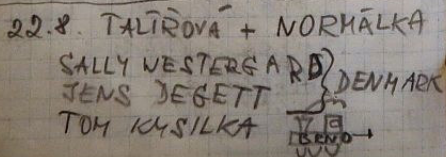 22.8. TALÍŘOVÁ + NORMÁLKA
SALLY WESTERGARD } DENMARK
JENS DEGETT
TOM KMSILKA
BRNO